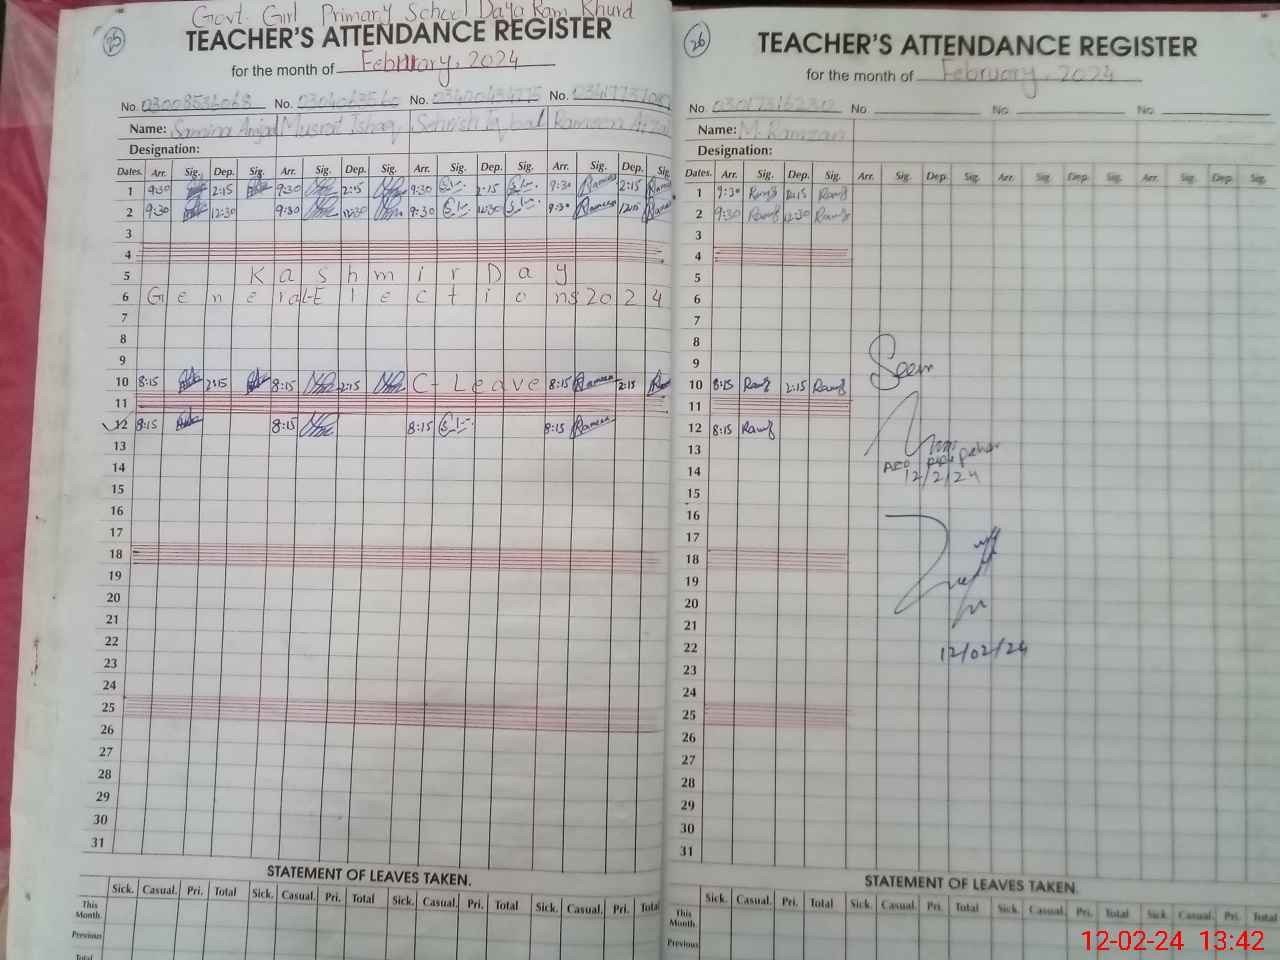 Govt. Girl Primary School Daya Ram Khurd
25
TEACHER'S ATTENDANCE REGISTER
for the month of February, 2024
No. 03008536068 No. No. No.
Name: Samina Amjad Musrat Ishaq Sehrish Iqbal Rameen
Designation:
Dates. Arr. Sig. Dep. Sig. Arr. Sig. Dep. Sig. Arr. Sig. Dep. Sig. Arr. Sig. Dep. Sig.
1 9:30 2:15 9:30 2:15 9:30 2:15 9:30 Rameen 2:15
2 9:30 12:30 9:30 12:30 9:30 12:30 9:30 Rameen 12:15
3
4
5 Kashmir Day
6 General Elections 2024
7
8
9
10 8:15 2:15 8:15 2:15 C- Leave 8:15 Rameen 2:15
11
12 8:15 8:15 8:15 8:15 Rameen
13
14
15
16
17
18
19
20
21
22
23
24
25
26
27
28
29
30
31
STATEMENT OF LEAVES TAKEN.
Sick. Casual. Pri. Total Sick. Casual. Pri. Total Sick. Casual. Pri. Total Sick. Casual. Pri. Total
This Month.
Previous
Total
26
TEACHER'S ATTENDANCE REGISTER
for the month of February, 2024
No. No. No. No.
Name: M. Ramzan
Designation:
Dates. Arr. Sig. Dep. Sig. Arr. Sig. Dep. Sig. Arr. Sig. Dep. Sig. Arr. Sig. Dep. Sig.
1 9:30 Ramz 2:15 Ramz
2 9:30 Ramz 12:30 Ramz
3
4
5
6
7
8
9 Seen
10 8:15 Ramz 2:15 Ramz
11
12 8:15 Ramz
13
14 AEO
12/2/24
15
16
17
18
19
20
21
22 12/02/24
23
24
25
26
27
28
29
30
31
STATEMENT OF LEAVES TAKEN.
Sick. Casual. Pri. Total Sick. Casual. Pri. Total Sick. Casual. Pri. Total Sick. Casual. Pri. Total
This Month.
Previous
12-02-24 13:42